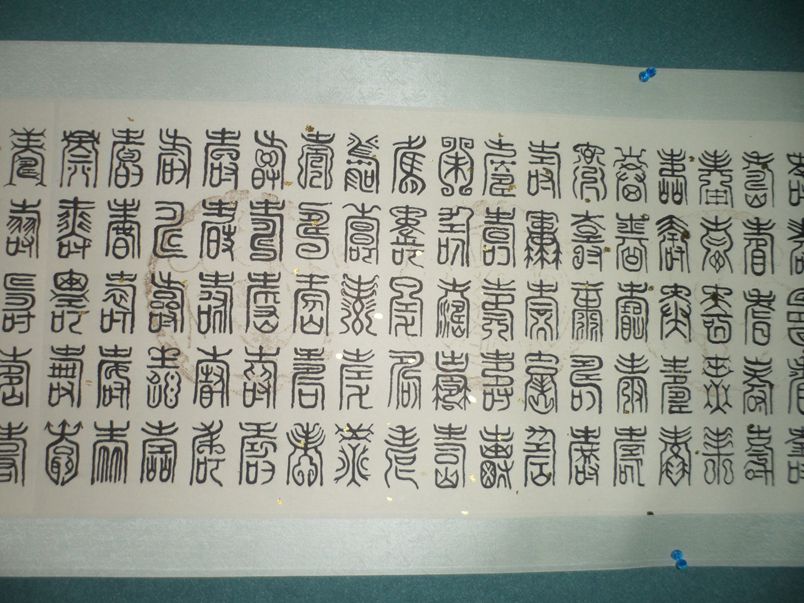 壽壽壽壽壽
壽壽壽壽壽
壽壽壽壽壽
壽壽壽壽壽
壽壽壽壽壽
壽壽壽壽壽
壽壽壽壽壽
壽壽壽壽壽
壽壽壽壽壽
壽壽壽壽壽
壽壽壽壽壽
壽壽壽壽壽
壽壽壽壽壽
壽壽壽壽壽
壽壽壽壽壽
壽壽壽壽壽
壽壽壽壽壽